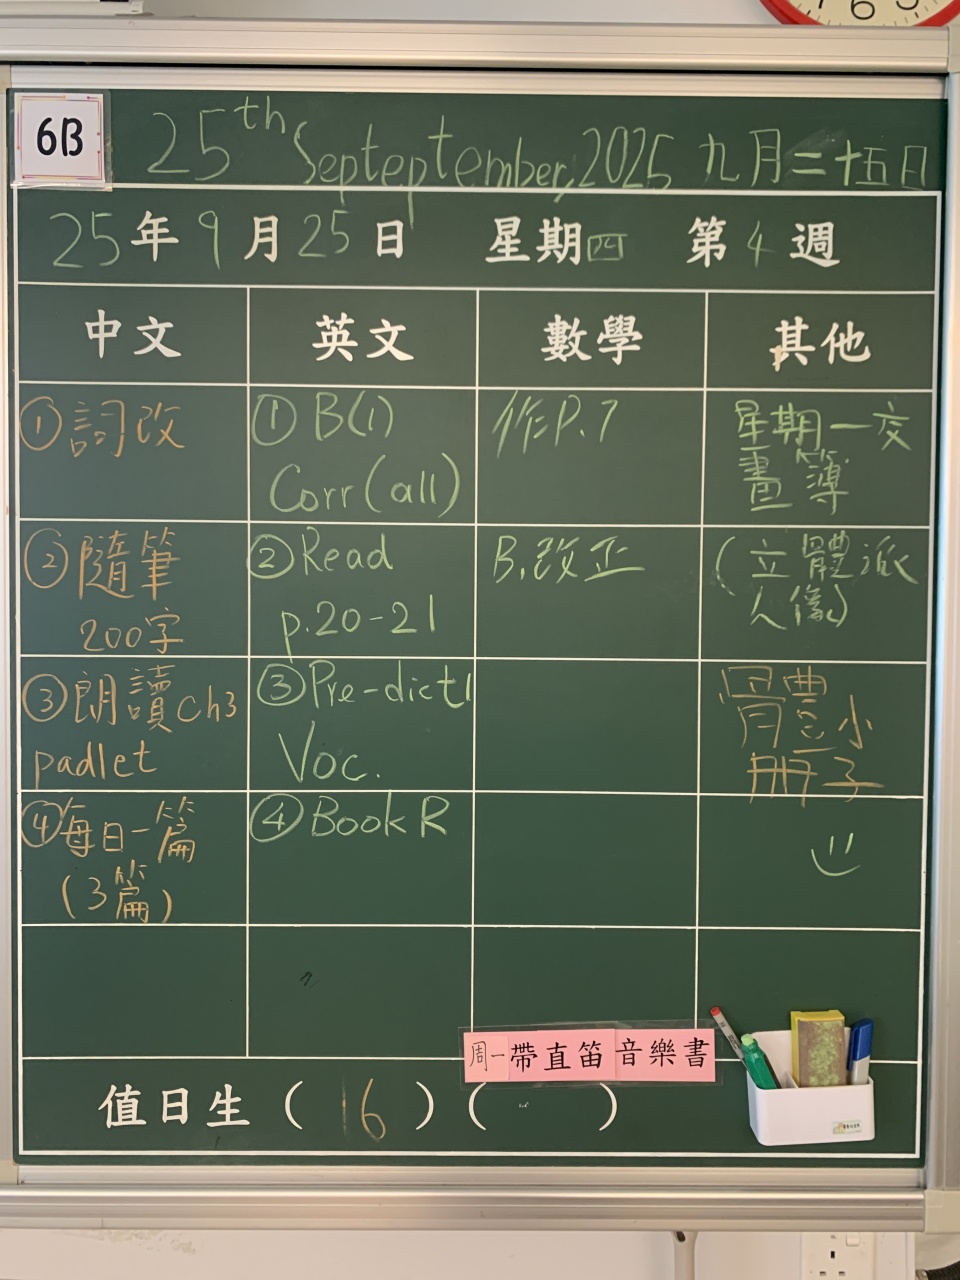 6B
25th Septeptember, 2025 九月二十五日
25年9月25日 星期四 第4週
中文 英文 數學 其他
①詞改
②隨筆
200字
③朗讀Ch3
padlet
④每日一篇
(3篇)
①B(1)
Corr(all)
②Read
p.20-21
③Pre-dict1
Voc.
④Book R
作P.7
B.改正
星期一交
畫簿
(立體派
人像)
體
小
冊子
周一帶直笛音樂書
值日生 ( 16 ) ( )